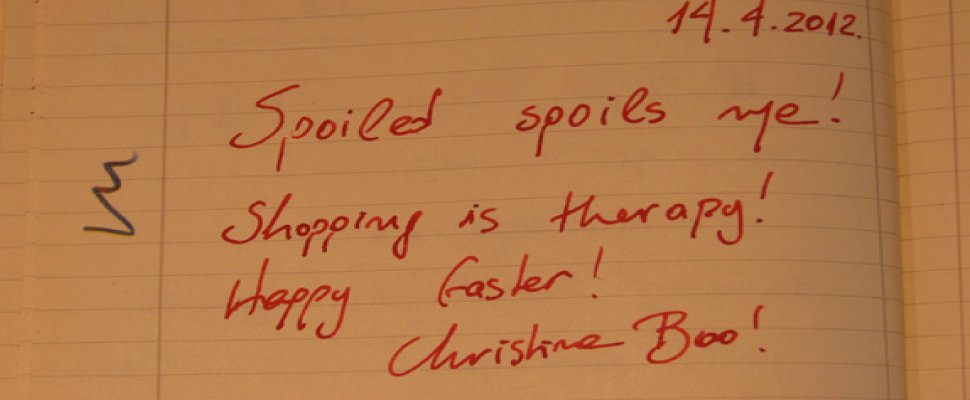 14.4.2012.
Spoiled spoils me!
Shopping is therapy!
Happy Easter!
Christine Boo!